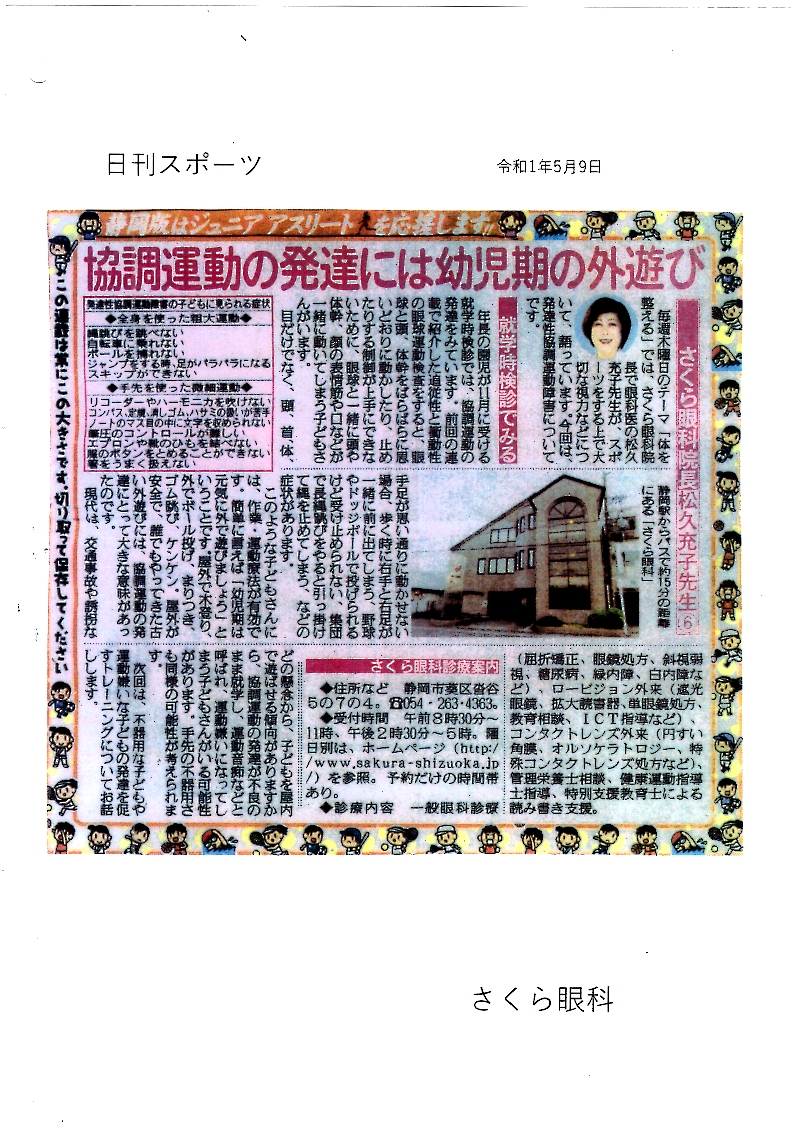 日刊スポーツ
令和1年5月9日
静岡版はジュニアアスリートを応援します!!
協調運動の発達には幼児期の外遊び
さくら眼科院長松久充子先生⑥
毎週木曜日のテーマ「体を
整える」では、さくら眼科院
長で眼科医の松久
充子先生が、スポ
ーツをする上で大
切な視力などにつ
いて、語っています。今回は、
発達性協調運動障害について
です。
就学時検診でみる
年長の園児が11月に受ける
就学時検診では、協調運動の
発達をみています。前回の連
載で紹介した追従性と衝動性
の眼球運動検査をすると、眼
球と頭、体幹をばらばらに思
いどおりに動かしたり、止め
たりする制御が上手にできな
いために、眼球と一緒に頭や
体幹、顔の表情筋や口などが
一緒に動いてしまう子どもさ
んがいます。
目だけでなく、頭、首、体、
発達性協調運動障害の子どもに見られる症状
◆全身を使った粗大運動◆
縄跳びを跳べない
自転車に乗れない
ボールを捕れない
ジャンプをする時、足がバラバラになる
スキップができない
◆手先を使った微細運動◆
リコーダーやハーモニカを吹けない
コンパス、定規、消しゴム、ハサミの扱いが苦手
ノートのマス目の中に文字を収められない
筆圧のコントロールが難しい
エプロンや靴のひもを結べない
服のボタンをとめることができない
箸をうまく扱えない
静岡駅からバスで約15分の距離
にある「さくら眼科」
手足が思い通りに動かせない
場合、歩く時に右手と右足が
一緒に前に出てしまう、野球
やドッジボールで投げられる
けど受け止められない、集団
で長縄跳びをやると引っ掛け
て縄を止めてしまう、などの
症状があります。
このような子どもさんに
は、作業・運動療法が有効で
す。簡単に言えば「幼児期は
元気に外で遊びましょう」と
いうことです。屋外で木登り、
外でボール投げ、まりつき、
ゴム跳び、ケンケン。屋外が
安全で、誰でもやってきた古
い外遊びには、協調運動の発
達にとって大きな意味があっ
たのです。
現代は、交通事故や誘拐な
どの懸念から、子どもを屋内
で遊ばせる傾向がありますか
ら、協調運動の発達が不良の
まま就学し、運動音痴などと
呼ばれ、運動嫌いになってし
まう子どもさんがいる可能性
があります。手先の不器用さ
も同様の可能性が考えられま
す。
次回は、不器用な子どもや
運動嫌いな子どもの発達を促
すトレーニングについてお話
しします。
さくら眼科診療案内
◆住所など 静岡市葵区沓谷
5の7の4。☎054・263・4363。
◆受付時間 午前8時30分~
11時、午後2時30分~5時。曜
日別は、ホームページ(http:/
/www.sakura-shizuoka.jp
/)を参照。予約だけの時間帯
あり。
◆診療内容 一般眼科診療
(屈折矯正、眼鏡処方、斜視弱
視、糖尿病、緑内障、白内障な
ど)、ロービジョン外来(遮光
眼鏡、拡大読書器、単眼鏡処方、
教育相談、ICT指導など)、
コンタクトレンズ外来(円すい
角膜、オルソケラトロジー、特
殊コンタクトレンズ処方など)、
管理栄養士相談、健康運動指導
士指導、特別支援教育士による
読み書き支援。
この連載は常にこの大きさです。切り取って保存してください
さくら眼科